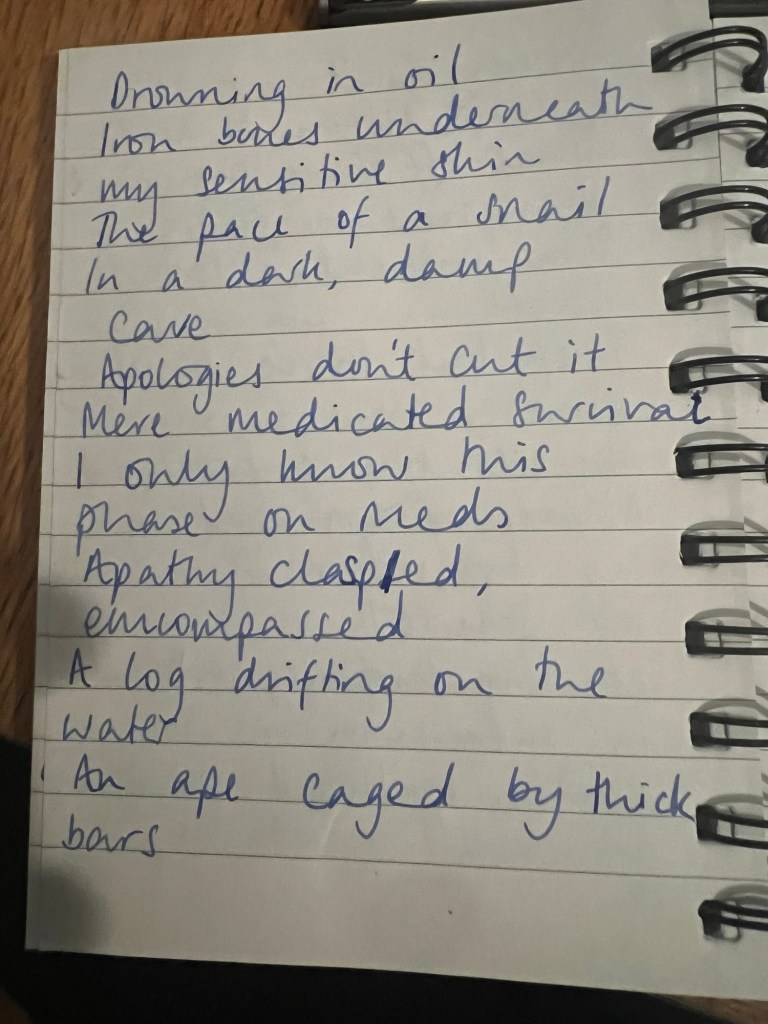 Drowning in oil
Iron bones underneath
my sensitive skin
The pace of a snail
In a dark, damp
cave
Apologies don't cut it
Mere medicated survival
I only know this
phase on meds
Apathy clasped,
encompassed
A log drifting on the
water
An ape caged by thick
bars